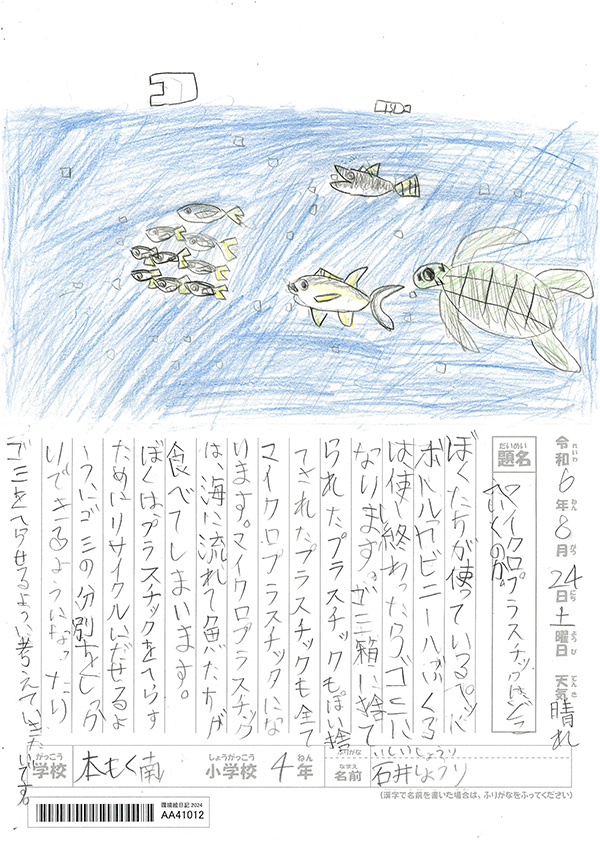 令和6年8月24日土曜日 天気 晴れ
れいわ ねん がつ にち ようび てんき
だいめい
題名
マイクロプラスチックはどこ
へいくのか。
ぼくたちが使っているペット
ボトルやビニールぶくろ
は使い終わったらゴミに
なります。ゴミ箱に捨て
られたプラスチックもぽい捨
てされたプラスチックも全て
マイクロプラスチックにな
います。マイクロプラスチック
は、海に流れて魚たちが
食べてしまいます。
ぼくはプラスチックをへらす
ためにリサイクルにだせるよ
うにゴミの分別をしっか
りできるようになったり
ゴミをへらせるように考えていきたいです。
がっこう
学校 本もく南
しょうがっこう ねん
小学校 4年
ふりがな いしいしょうり
なまえ
名前 石井しょうり
(漢字で名前を書いた場合は、ふりがなをふってください)
環境絵日記2024
AA41012